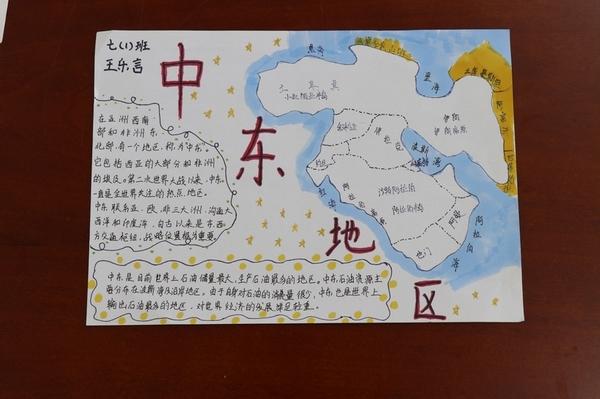 七(1)班
王乐言
中
东
地
区
在亚洲西南
部和非洲东
北部,有一个地区,称为"中东"。
它包括西亚的大部分和非洲
的埃及。第二次世界大战以来,中东
一直是全世界关注的热点地区。
中东联系亚、欧、非三大洲,沟通大
西洋和印度洋,自古以来是东西
方交通枢纽,战略位置极为重要。
中东是目前世界上石油储量最大,生产石油最多的地区。中东石油资源主
要分布在波斯湾及沿岸地区。由于自身对石油的消费量很少,中东也是世界上
输出石油最多的地区,对世界经济的发展举足轻重。
黑海
里海
土库曼斯坦
阿富汗
土耳其
小亚细亚半岛
叙利亚
伊拉克
伊朗
伊朗高原
波斯湾
红海
沙特阿拉伯
阿拉伯半岛
阿曼
也门
阿拉伯海